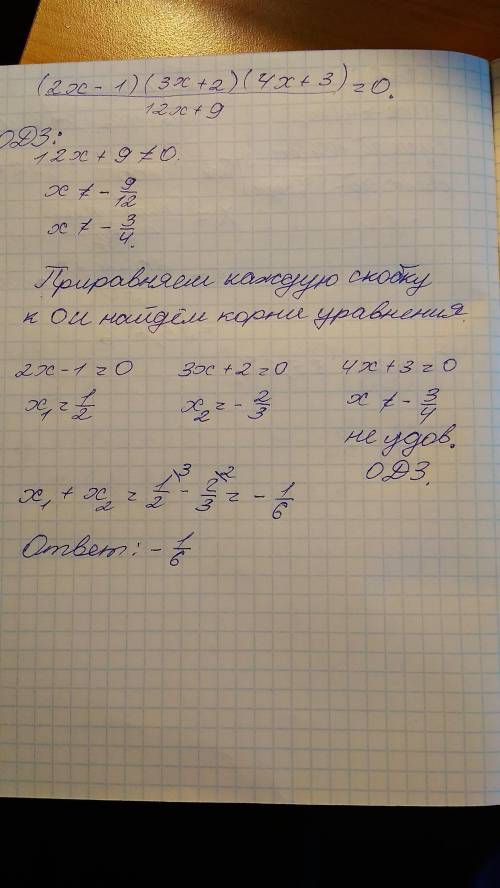 (2x-1)(3x+2)(4x+3)/12x+9 = 0.
ОДЗ:
12x+9≠0.
x ≠ -9/12
x ≠ -3/4.
Приравняем каждую скобку
к 0 и найдём корни уравнения.
2x-1=0 3x+2=0 4x+3=0
x₁=1/2 x₂=-2/3 x ≠ -3/4
не удов.
ОДЗ.
x₁+x₂=1/2\3 - 2/3\2 = -1/6
Ответ: -1/6